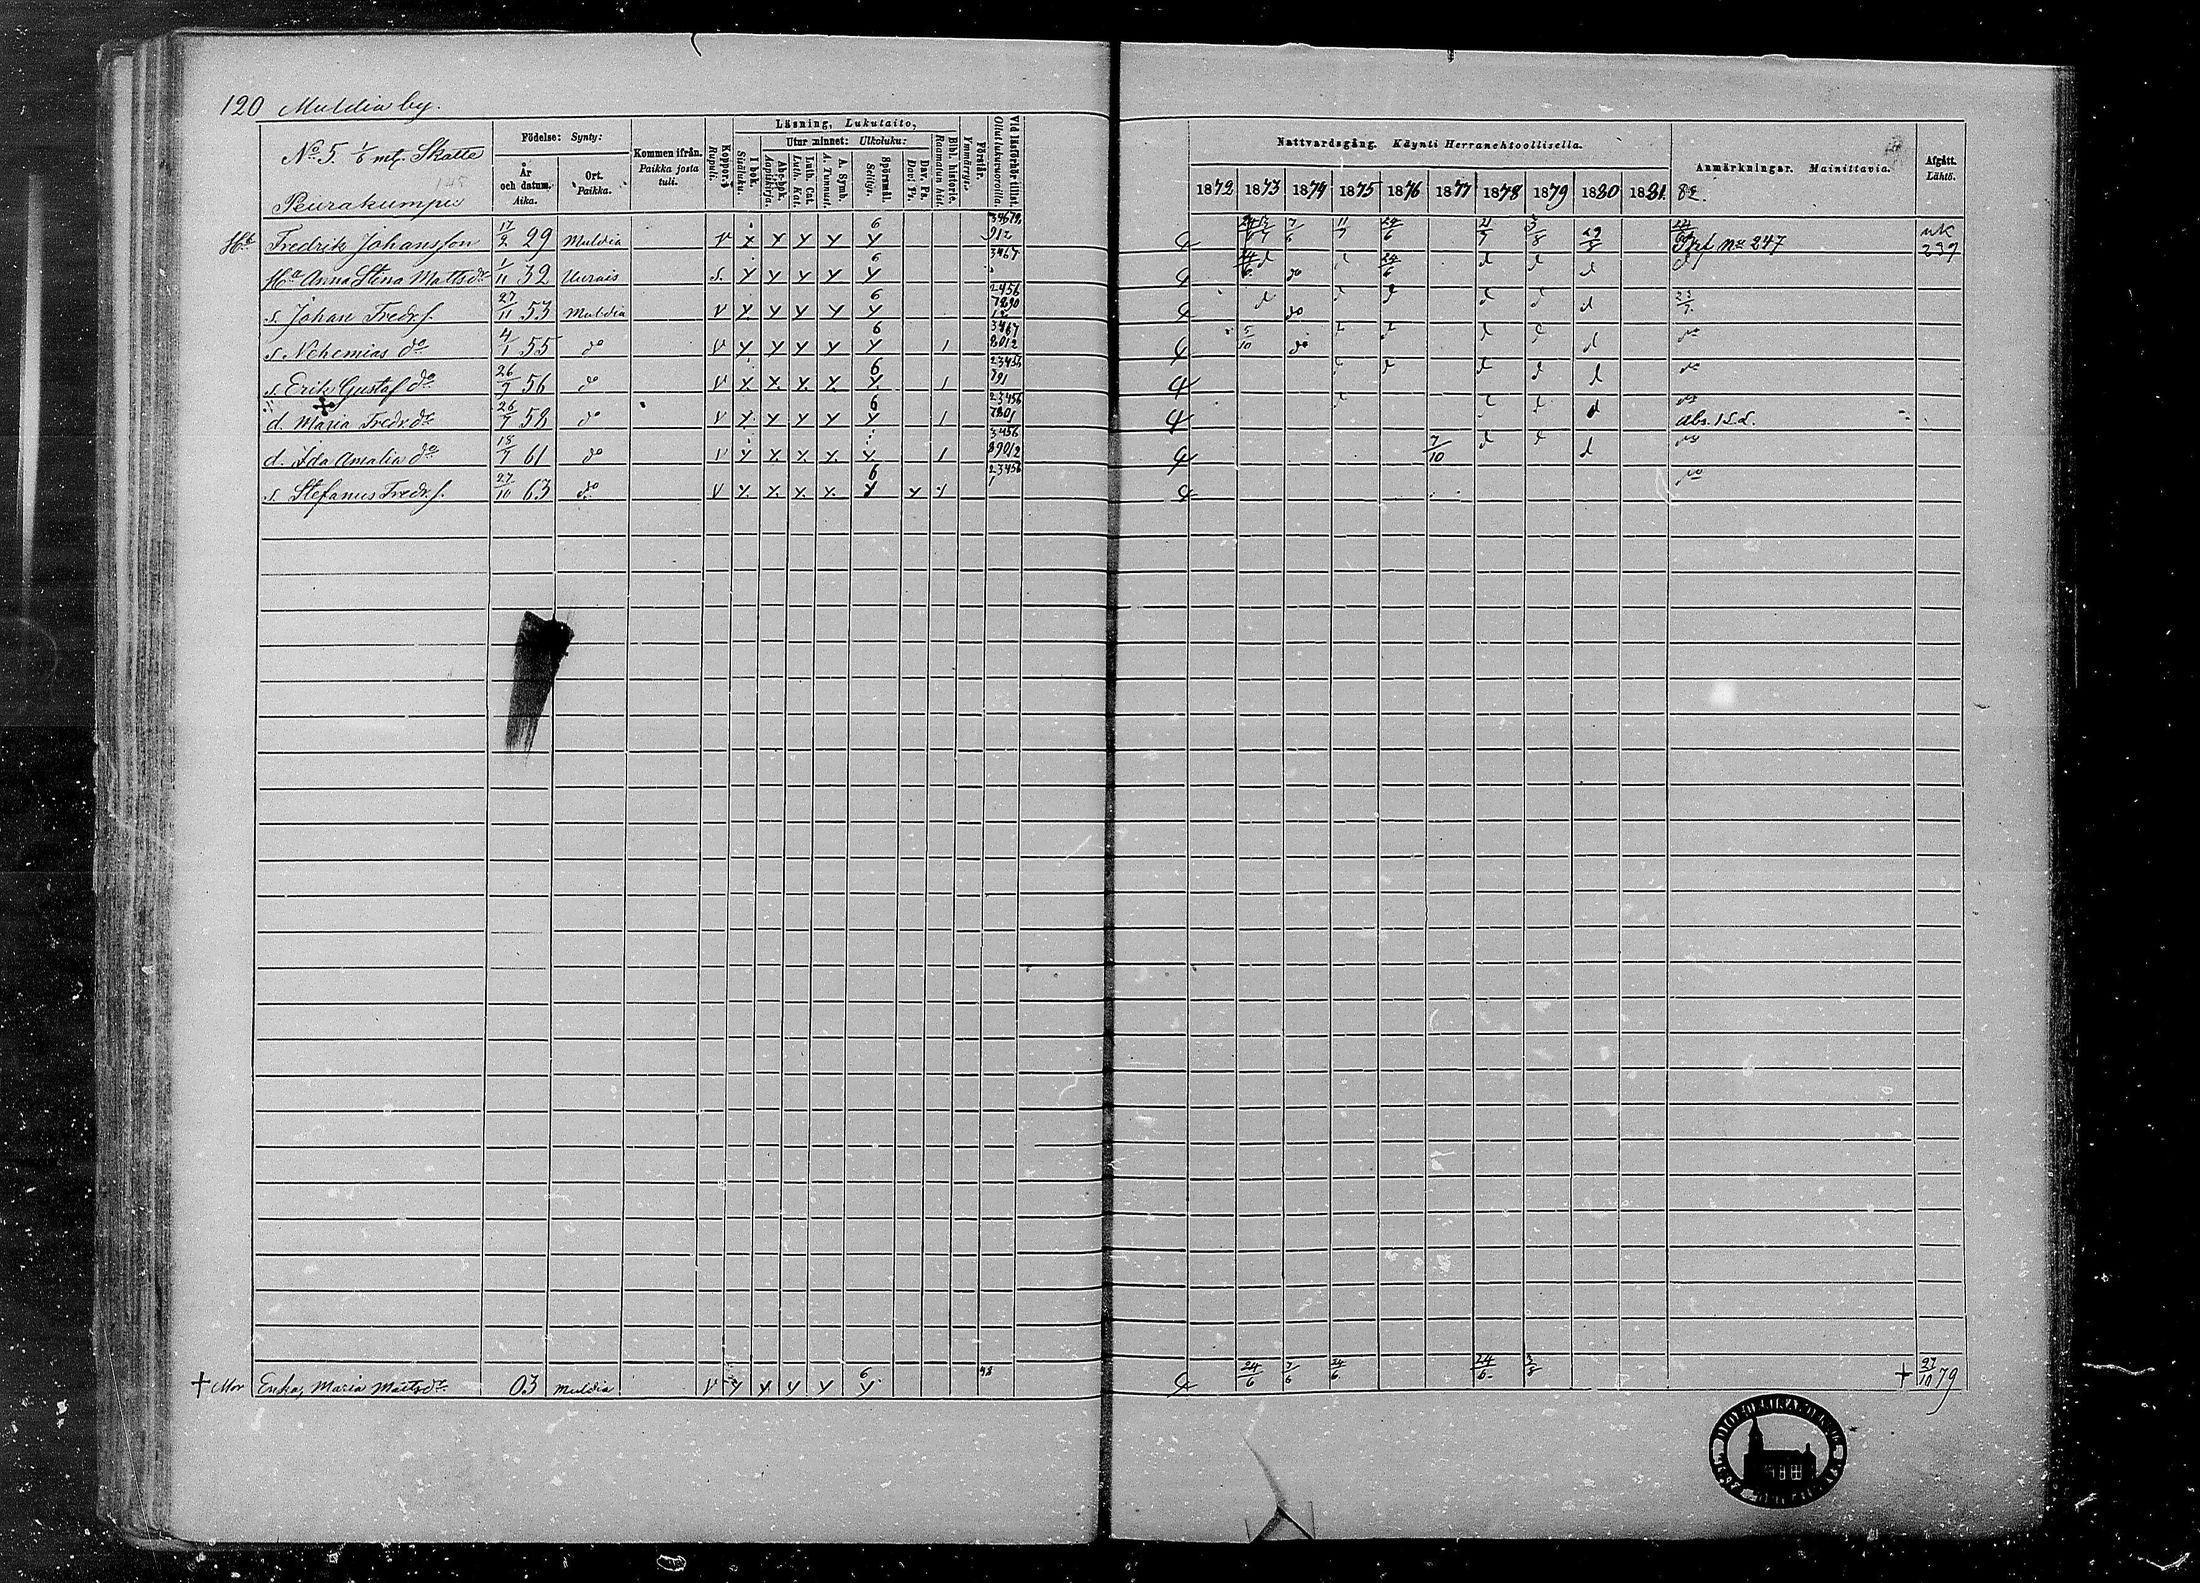 120 Muldia by.
No 5. 1/6 mtl. Skatte
Peurakumpu
Födelse: Synty:
År och datum. Aika.
Ort. Paikka.
Kommen ifrån. Paikka josta tuli.
Koppor. Rupuli.
Läsning, Lukutaito,
I bok. Sisäluku.
Utur minnet: Ulkoluku:
Abc-bok. Aapiskirja.
Luth. Cat. Luth. Kat.
A. Symb. A. Tunnust.
Spörsmål. Selitys.
Dav. Ps. Dav. Ps.
Bibl. historie. Raamatun hist.
Förstår. Ymmärrys.
Vid läsförhör tillst. Ollut lukuvuoroilla.
Nattvardsgång. Käynti Herranehtoollisella.
1872 1873 1874 1875 1876 1877 1878 1879 1880 1881 82.
Anmärkningar. Mainittavia.
Afgått. Lähtö.
Fredrik Johansson 17/2 29 Muldia v x x x x 6 x 34679, 912 24/6 7/6 11/7 24/6 21/7 3/8 29/8 Prf. No 247 239
Ha Anna Stina Mattsdr 1/11 32 Uurais s. x x x x 6 x 3467 24/6 d do 24/6 d d d d
s. Johan Fredr.s. 27/11 53 Muldia v x x x x 6 x 2456 7890 12 d do d d d d d 23/7.
s. Nehemias do 4/1 55 do v x x x x 6 x 1 3467 8012 5/10 do d d do
s. Erik Gustaf do 26/9 56 do v x x x x 6 x 1 23456 791 d d d do
d. Maria Fredr.dr 26/7 58 do v x x x x 6 x 1 23456 7801 d d d do Abs. 1 S.d.
d. Ida Amalia do 18/7 61 do v x x x x x 1 3456 89012 7/10 d d d do
s. Stefanus Fredr.s. 27/10 63 do v x x x x 6 x x 1 23456 1 do
† Mor Enka, Maria Mattsdr. 03 Muldia v x x x x 6 x 24/6 7/6 24/6 24/6 3/8 † 27/10 79